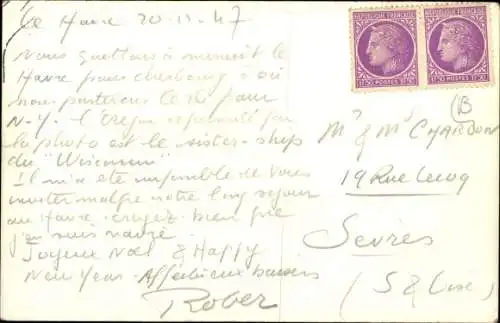 Le Havre 20-11-47
Nous quittons à minuit le
Havre pour Cherbourg d'où
nous partirons le 26 pour
N-Y. l'Oregon représenté par
la photo est le sister-ship
du "Wisconsin"
Il m'a été impossible de vous
inviter malgré notre long séjour
au Havre. croyez bien que
j'en suis navré.
Joyeux Noël & Happy
New Year. Affectueux baisers
Rober
REPUBLIQUE FRANÇAISE
1F50 POSTES 1F50
REPUBLIQUE FRANÇAISE
1F50 POSTES 1F50
B
Mr & Me CHARDON
19 Rue Lecoq
Sèvres
(S & Oise)